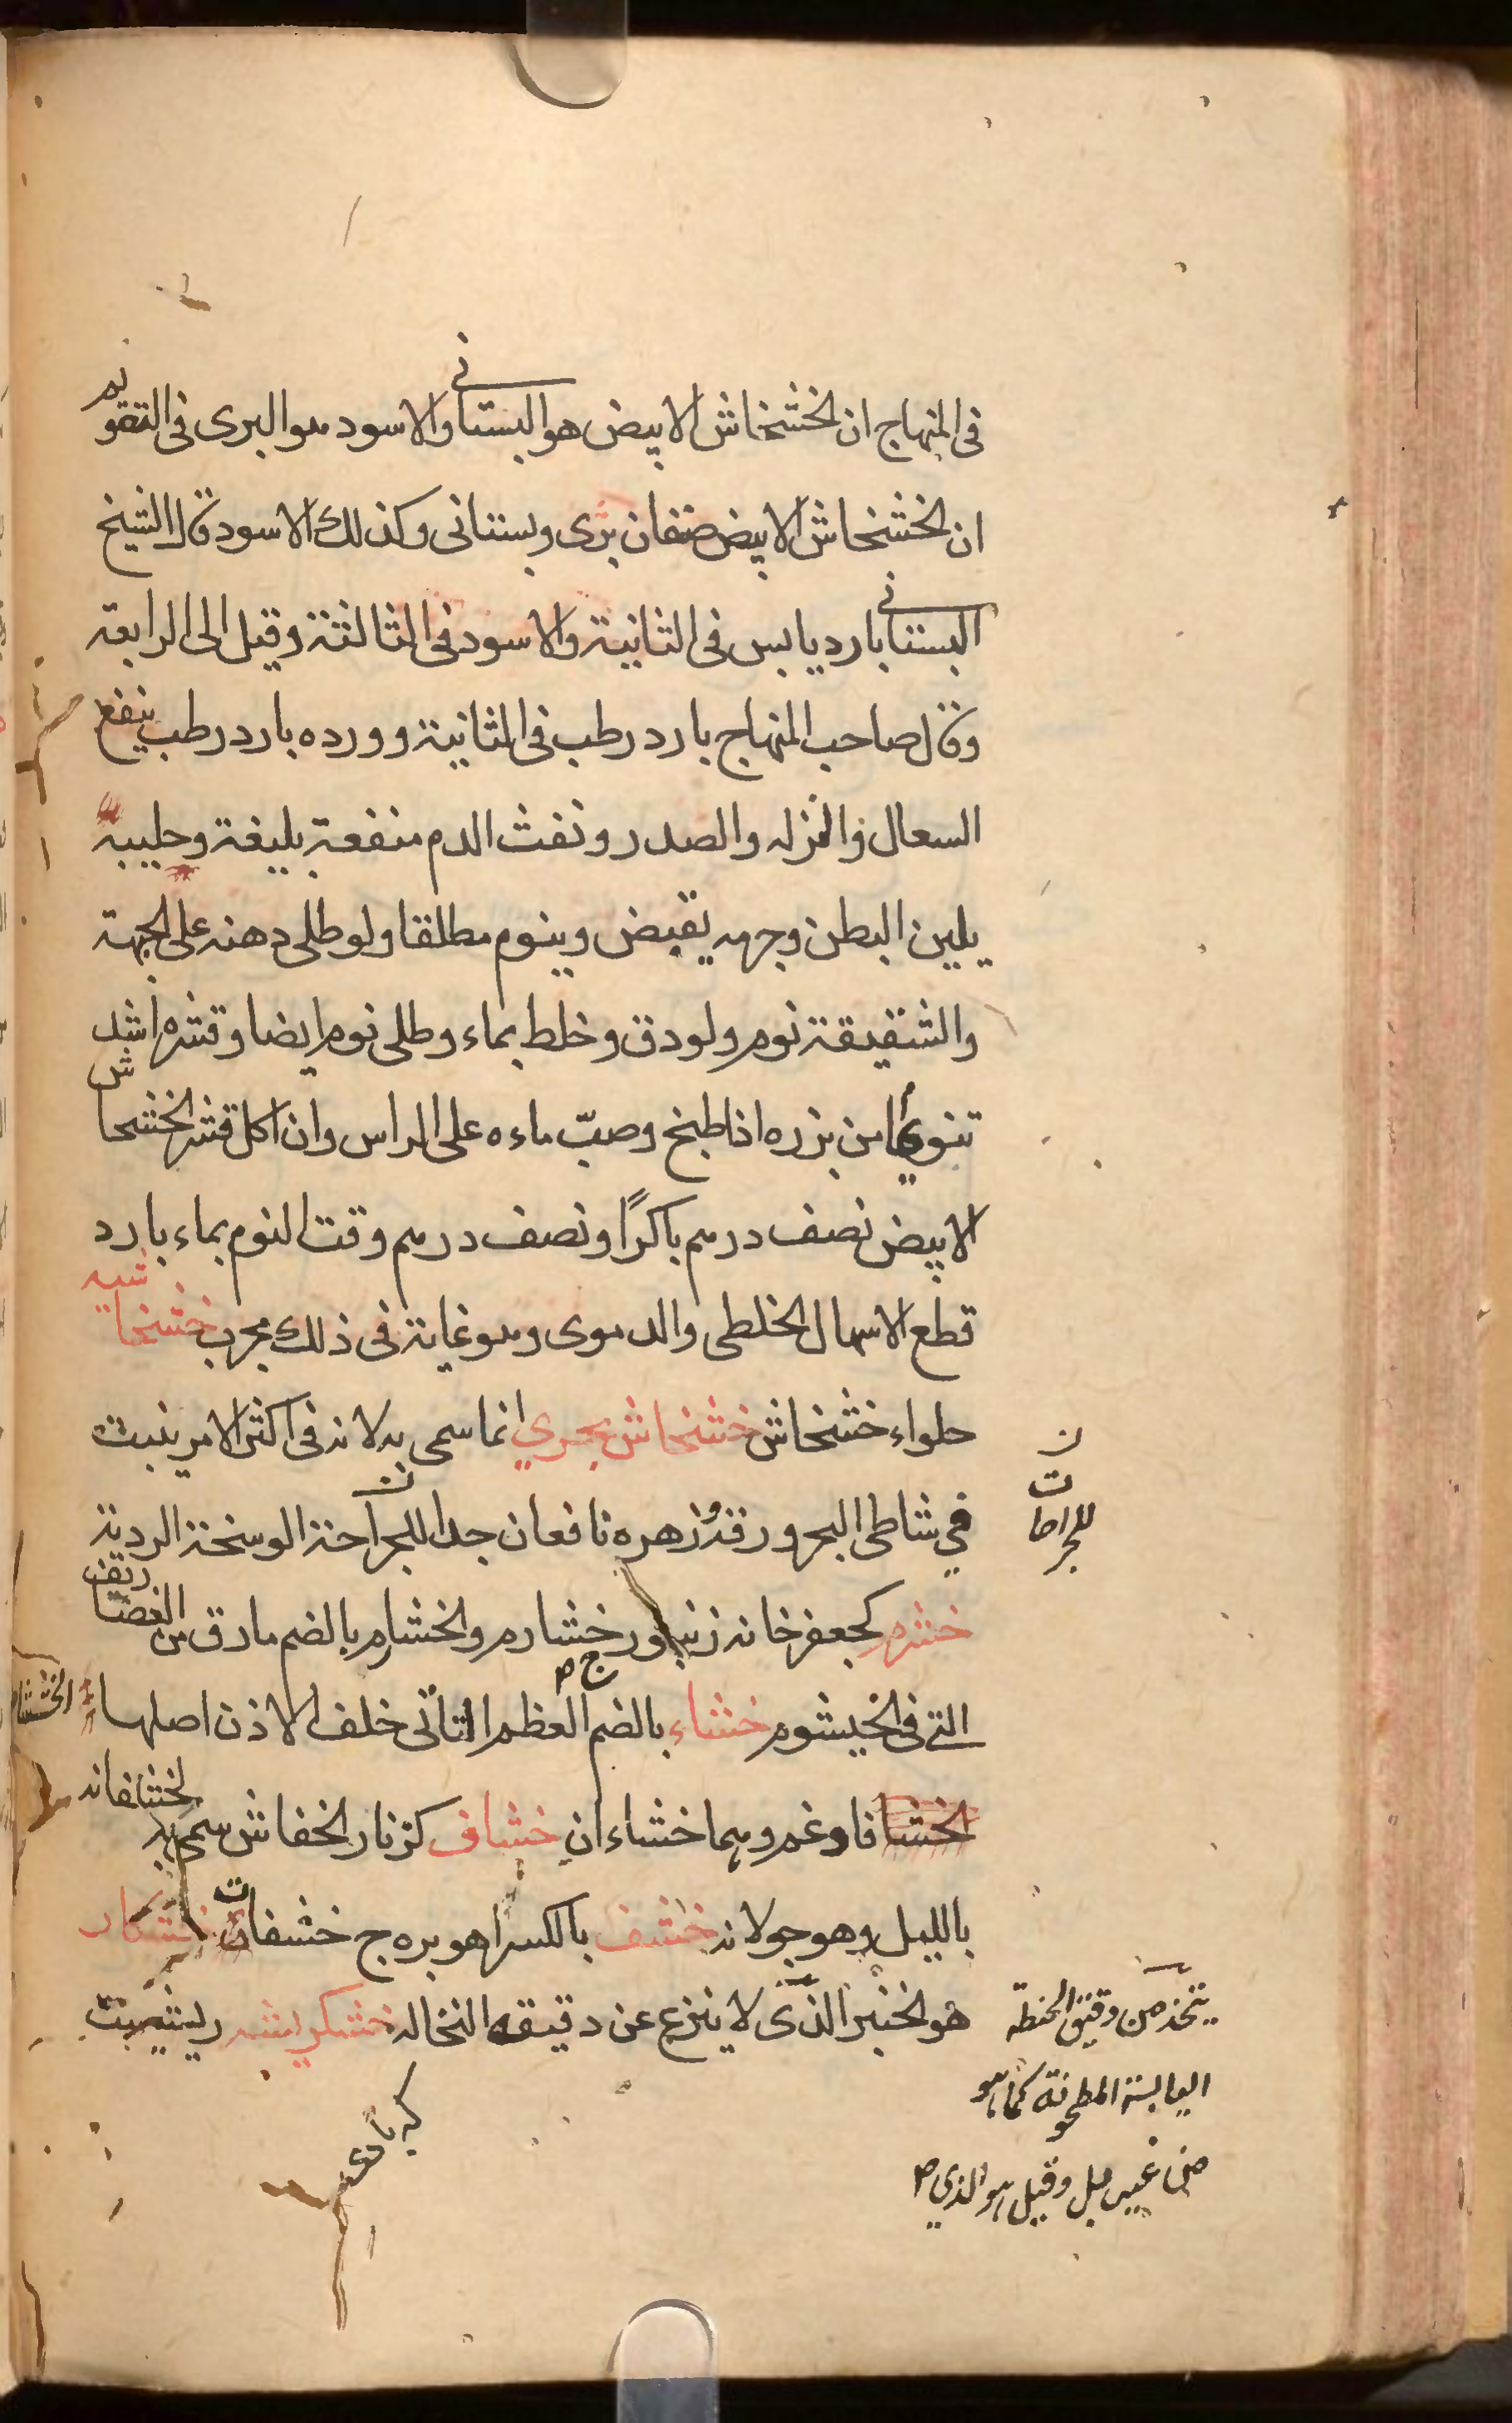 في المنهاج ان الخشخاش الابيض هو البستانى والاسود هو البرى فى التقويم
ان الخشخاش الابيض صنفان برى وبستانى وكذلك الاسود قال الشيخ
البستانى بارد يابس فى الثانية والاسود فى الثالثة وقيل الى الرابعة
وقال صاحب المنهاج بارد رطب فى الثانية وورده بارد رطب ينفع
السعال والنزله والصدر ونفث الدم منفعة بليغة وحليبه
يلين البطن وجرمه يقبض وينوم مطلقا ولو طلى دهنه على الجبهة
والشقيقة نوم ولو دق وخلط بماء وطلى نوم ايضا وقشره اشد
تنويما من بزره اذا طبخ وصبّ ماءه على الراس وان اكل قشر الخشخاش
الابيض نصف درهم باكرًا ونصف درهم وقت النوم بماء بارد
قطع الاسهال الخلطى والدموى وهو غاية فى ذلك مجرب خشخاشيه
حلواء خشخاش خشخاش بحري انما سمى به لانه فى اكثر الامر ينبت
في شاطى البحر ورقه وزهره نافعان جدا للجراحة الوسخة الردية
للجراحات
خشرم كجعفر خانه زنبور خشارم والخشارم بالضم مارق من الغضاريف
التى فى الخيشوم خشاء بالضم العظم الناتى خلف الاذن اصلها الخششاء
فادغم وهما خشاءان خشاف كزنار الخفاش سمى به لخشفانه
بالليل وهو جولانه خشف بالكسر اهو بره ج خشفات خشكار
هو الخبز الذى لا ينزع عن دقيقه النخاله خشكريشه ريشيست
يتخذ من دقيق الحنطة
اليابسة المطحونة كما هو
من غير بل وقيل هو الذي
كه با